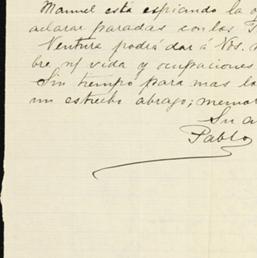 Manuel está espiando la o
aclarar paradas con los T
Ventura podrá dar á Vos. n
bre n/ vida y ocupaciones
Sin tiempo para mas lo
un estrecho abrazo; memor
Su a
Pablo